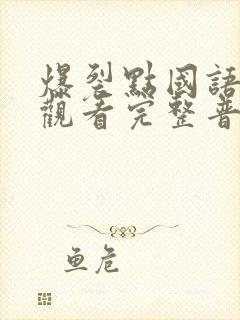 爆裂點國語
觀看完整普
鱼危